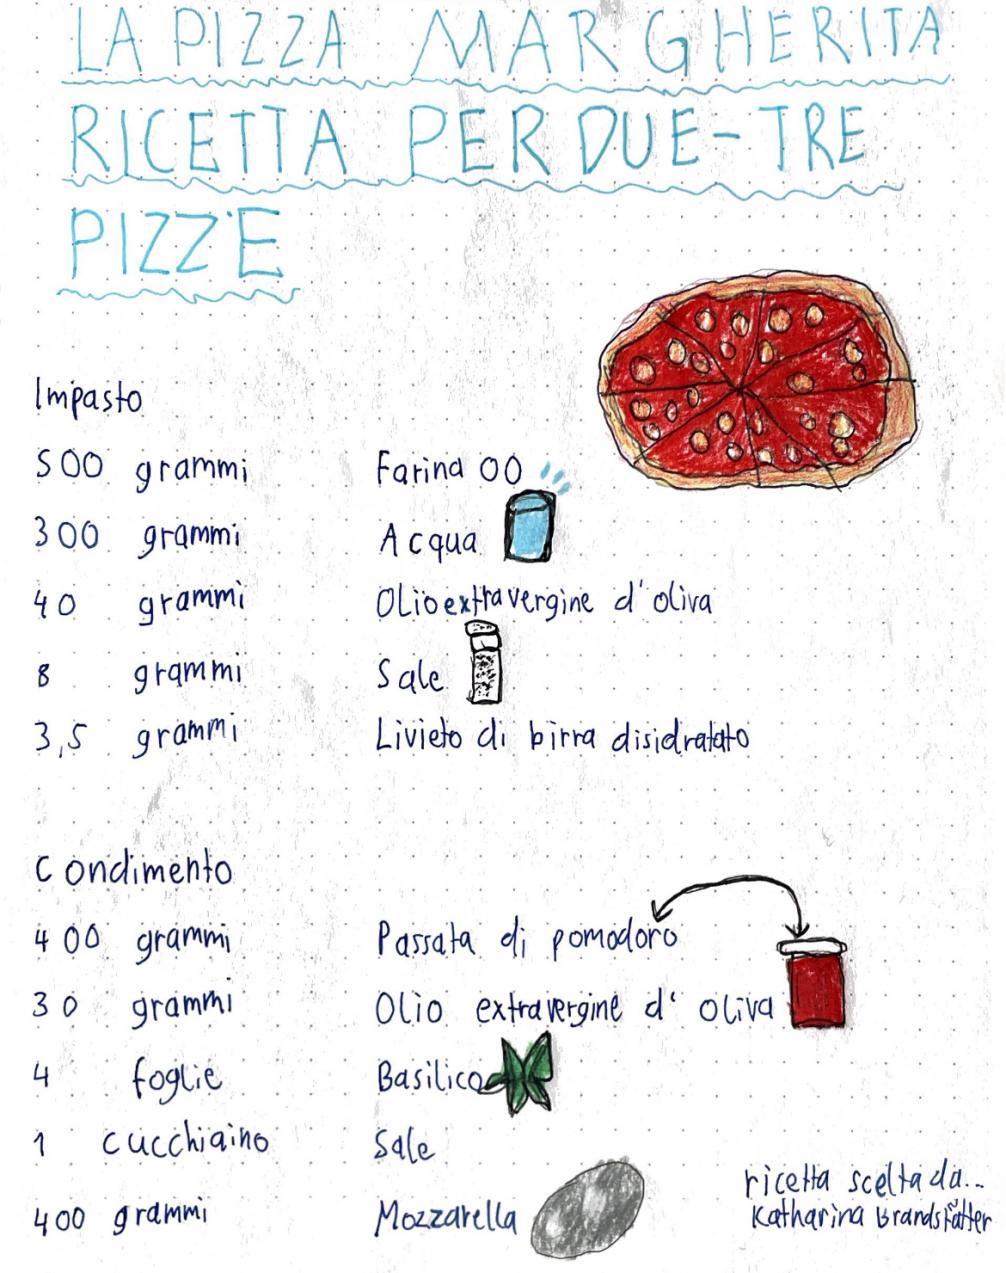 LA PIZZA MARGHERITA
RICETTA PER DUE-TRE
PIZZE
Impasto
500 grammi Farina 00
300 grammi Acqua
40 grammi Olio extravergine d'oliva
8 grammi Sale
3,5 grammi Livieto di birra disidratato
Condimento
400 grammi Passata di pomodoro
30 grammi Olio extravergine d'oliva
4 foglie Basilico
1 cucchiaino Sale
400 grammi Mozzarella
ricetta scelta da...
Katharina Brandstätter